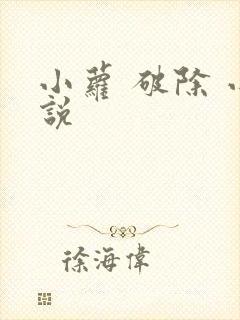 小蘿 破除
說
徐海偉